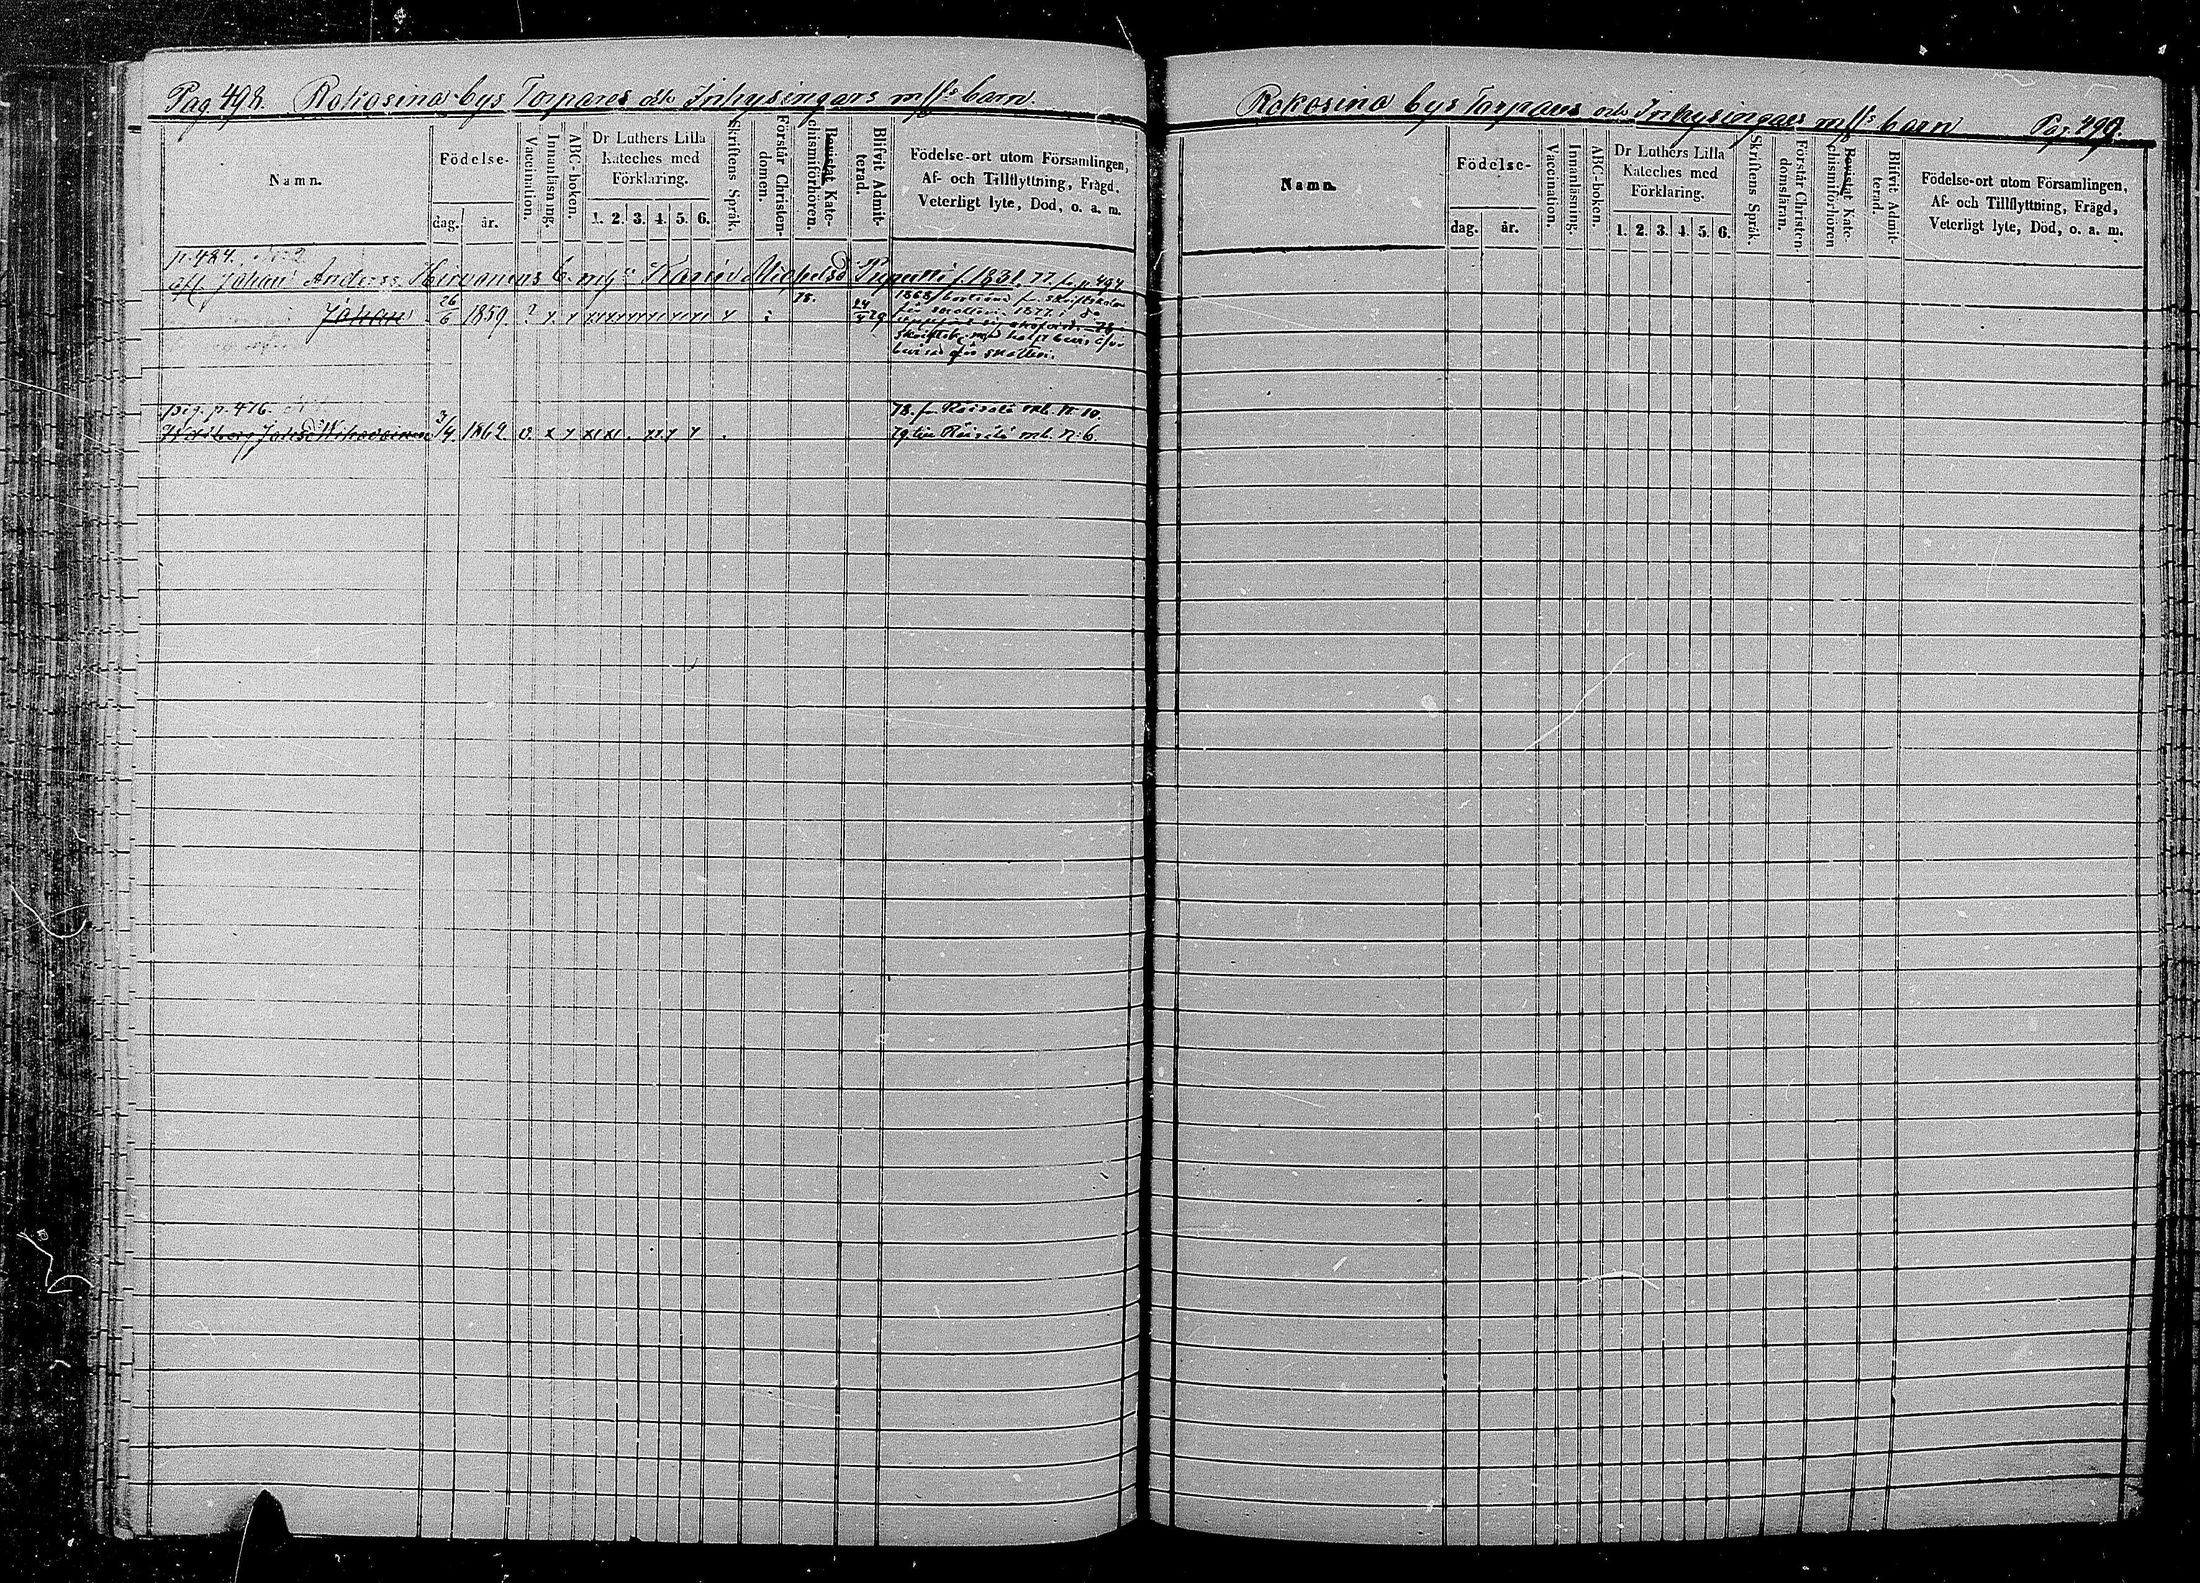 Pag. 498. Rokosina bys Torpares och Inhysingars m/fl: barn.
Namn.
Födelse-
dag. år.
Vaccination.
Innanläsning.
ABC-boken.
Dr Luthers Lilla
Kateches med
Förklaring.
1. 2. 3. 4. 5. 6.
Skriftens Språk.
Förstår Christen-
domen.
Bevistat Kate-
chismiförhören.
Blifvit Admit-
terad.
Födelse-ort utom Församlingen,
Af- och Tillflyttning, Frägd,
Veterligt lyte, Död, o. a. m.
p. 484.
afl. Johan Anderss. Hirvonens E. Karin Michelsd f. 1838. 77. fr. p. 494
Johan 26/6 1859. ? x x xx xx xx xx xx xx x : 78. 24/4 79
1868 för skolten. 1877 i
för skolten.
pig. p. 476. 78. fr. Räisälä mb. N: 10.
Walborg Johsd 3/4 1862. v. x x xx x . x x x x . 79 till Räisälä mb. N: 6.
Rokosina bys Torpares och Inhysingars m/fl: barn Pag. 499.
Namn.
Födelse-
dag. år.
Vaccination.
Innanläsning.
ABC-boken.
Dr Luthers Lilla
Kateches med
Förklaring.
1. 2. 3. 4. 5. 6.
Skriftens Språk.
Förstår Christen-
domsläran.
Bevistat Kate-
chismiförhören
Blifvit Admit-
terad.
Födelse-ort utom Församlingen,
Af- och Tillflyttning, Frägd,
Veterligt lyte, Död, o. a. m.